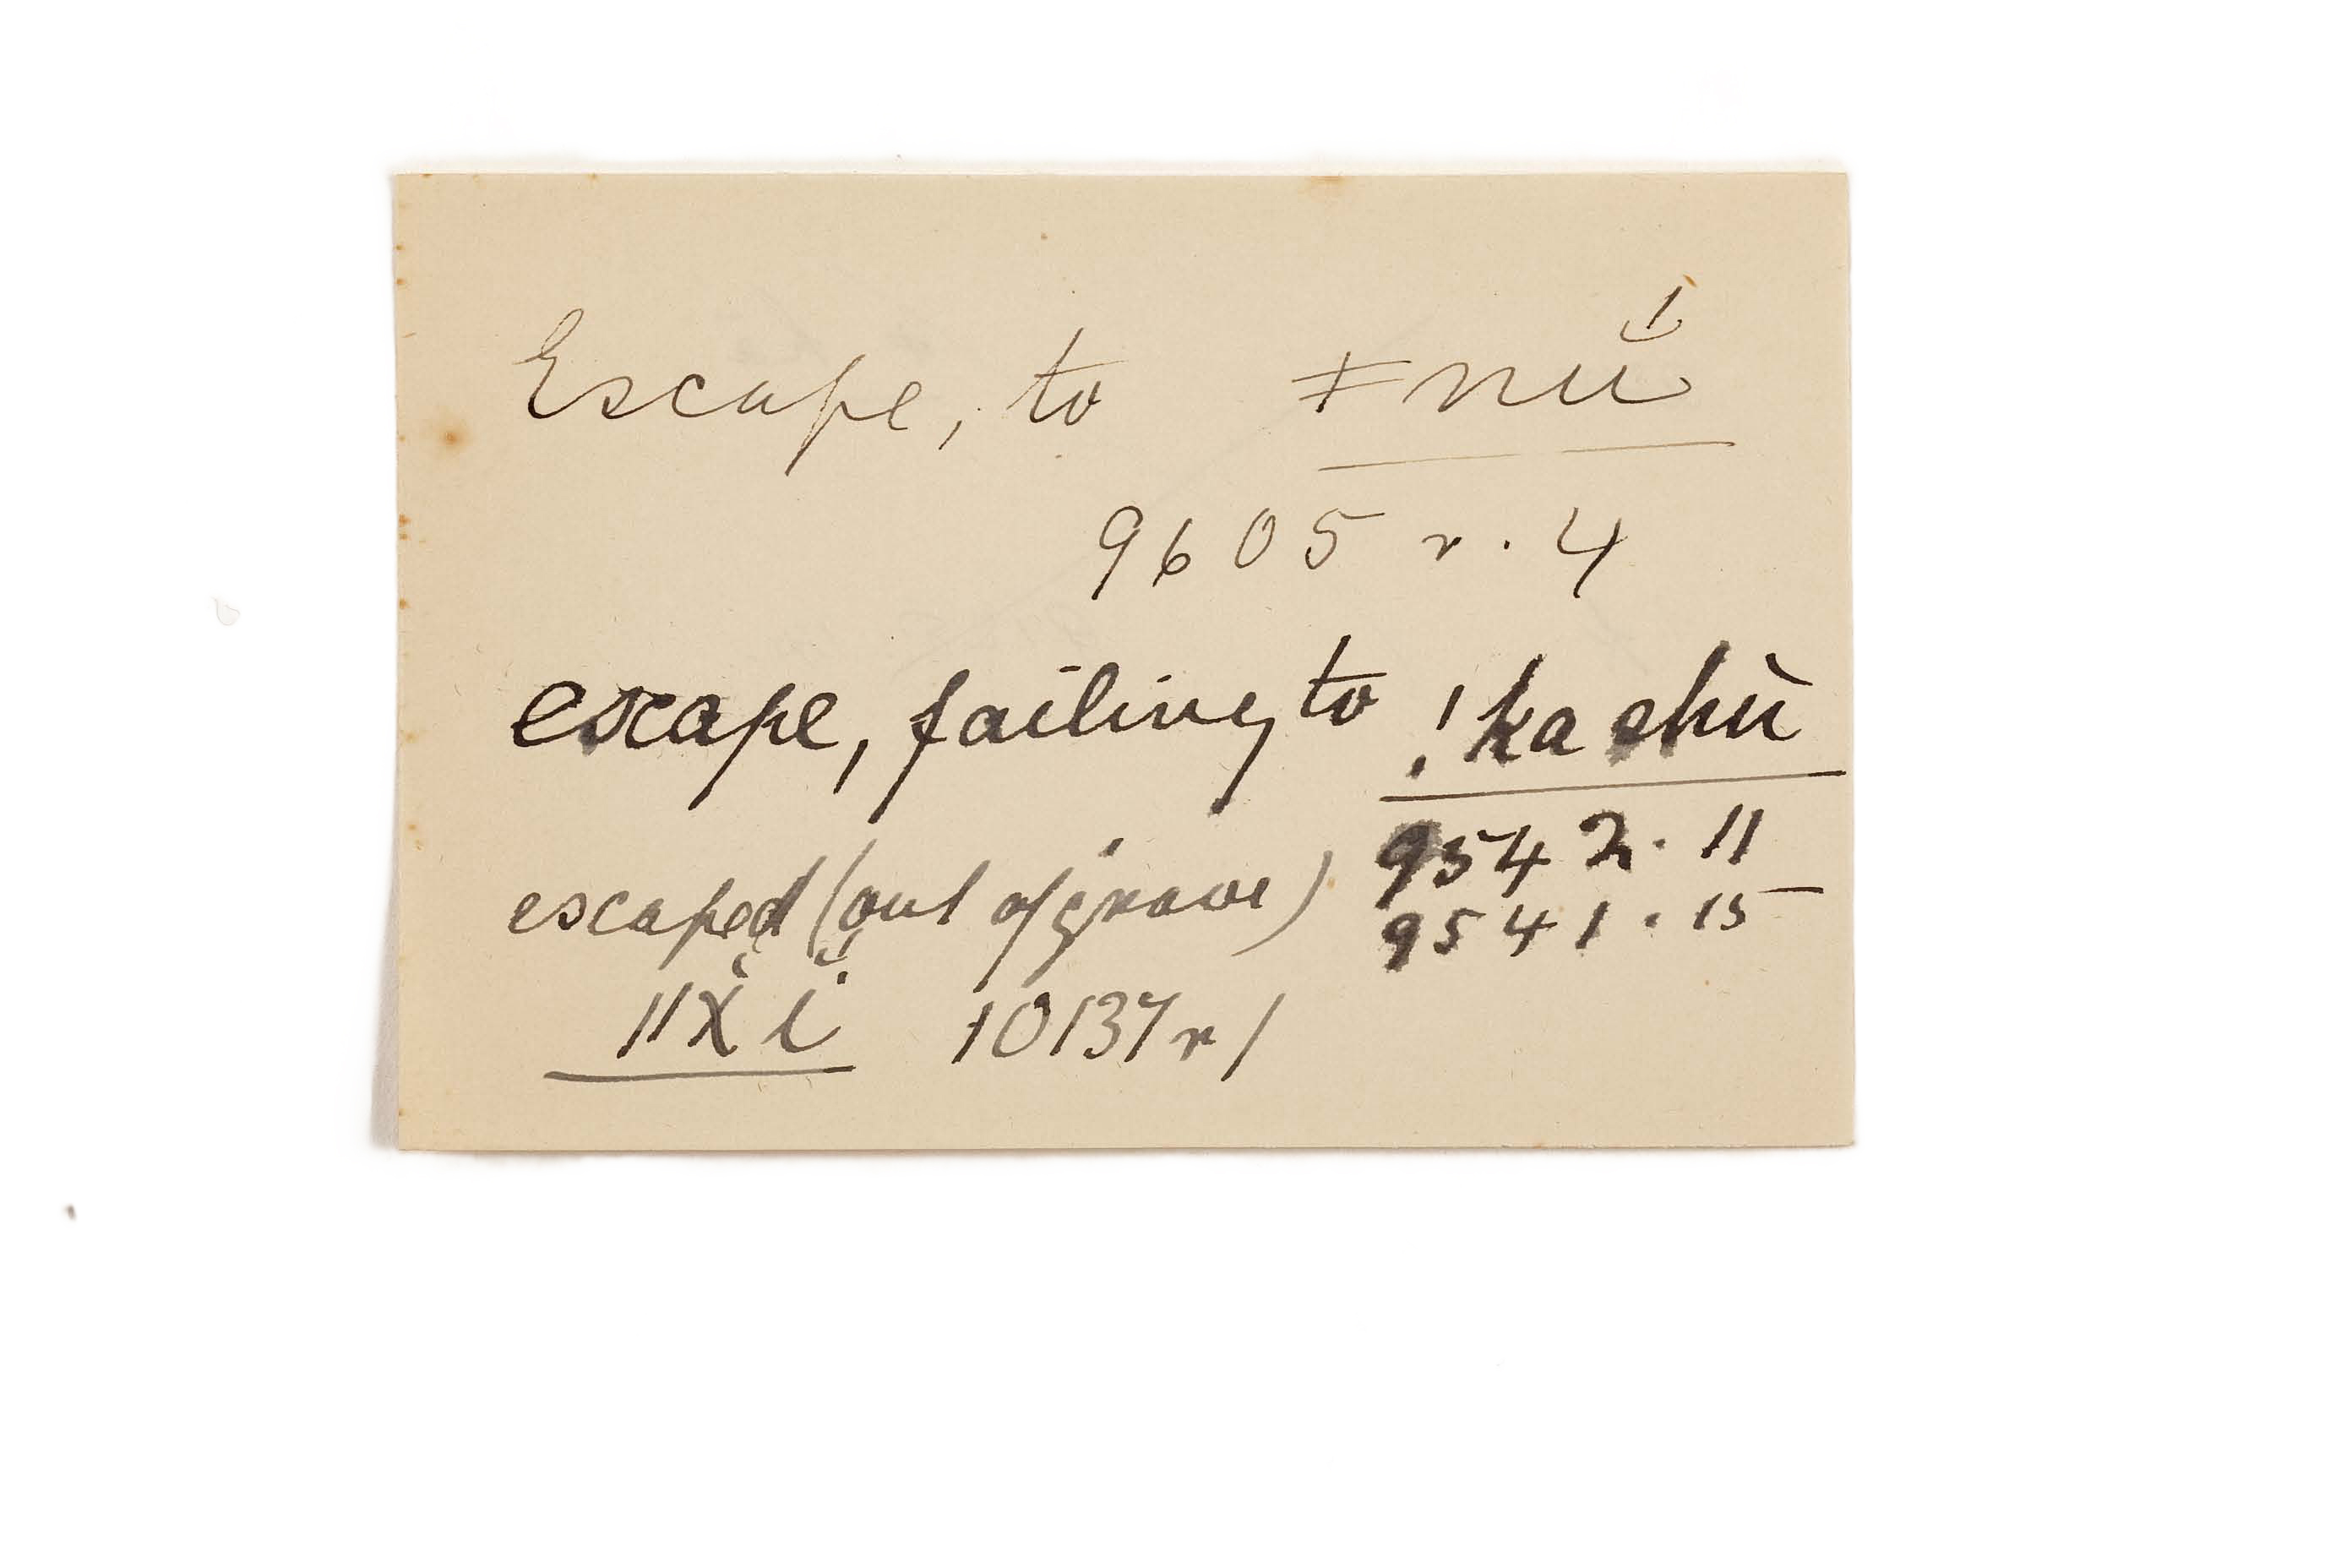 Escape, to ǂnŭ́
9605 r. 4
escape, failing to !kashù
9542. 11
escaped (out of grave) 9541. 15
ǁχĭ 10137 r 1